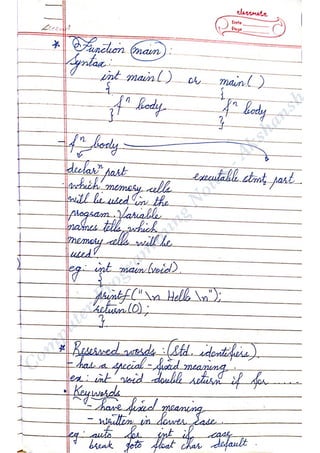 classmate
Date
Page
* ② Function main :
Syntax:
int main( ) or main( )
{ {
fⁿ body fⁿ body
} }
- fⁿ body
declarⁿ part executable stmt, part
- which memory cells
will be used in the
program. Variable
names tells, which
memory cells will be
used
eg: int main(void)
{
printf("\n Hello \n");
return(0);
}
* Reserved words: (Std. identifiers).
- has a special - fixed meaning.
ex: int void double return if for .....
• Keywords
- have fixed meaning
- written in lower case.
eg auto for int if case
break goto float char default.
Computer Programming Notes - Akshansh